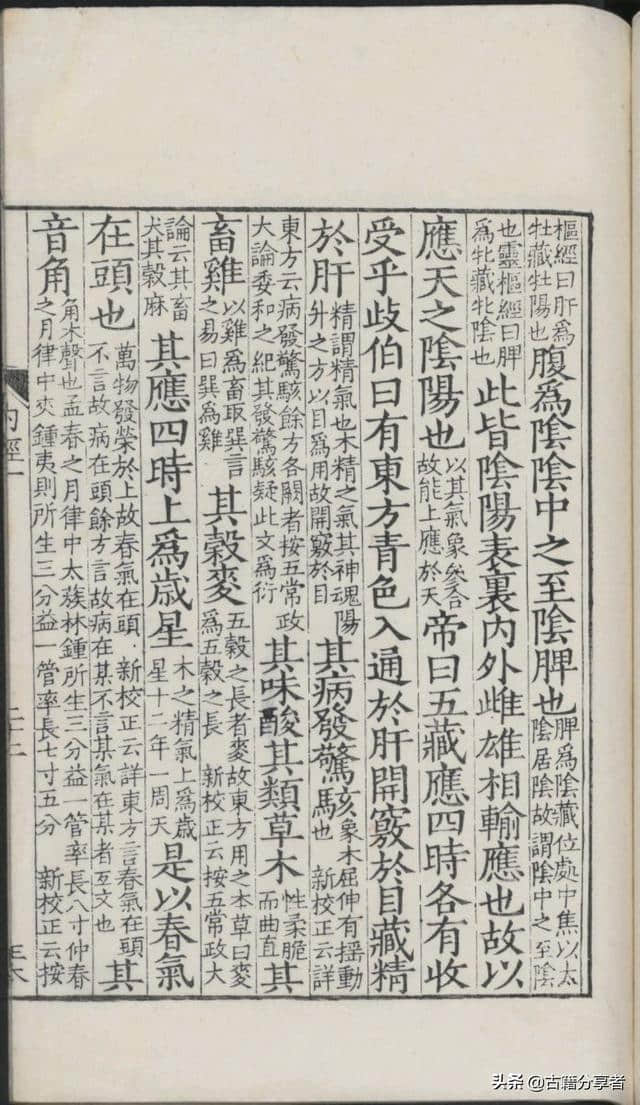 樞經曰肝為牡藏牡陽也腹爲陰陰中之至陰脾也脾爲陰藏位處中焦以太陰居陰故謂陰中之至陰
也靈樞經曰脾爲牝藏牝陰也此皆陰陽表裏内外雌雄相輸應也故以
應天之陰陽也以其氣象參合故能上應於天帝曰五藏應四時各有收
受乎歧伯曰有東方青色入通於肝開竅於目藏精
於肝精謂精氣也木精之氣其神魂陽升之方以目爲用故開竅於目其病發驚駭象木屈伸有揺動也 新校正云詳
東方云病發驚駭餘方各闕者按五常政大論委和之紀其發驚駭疑此文爲衍其味酸其類草木性柔脆而曲直其
畜雞以雞爲畜取巽言之易曰巽爲雞其穀麥五穀之長者麥故東方用之本草曰麥爲五穀之長 新校正云按五常政大
論云其畜犬其穀麻其應四時上爲歲星木之精氣上爲歲星十二年一周天是以春氣
在頭也萬物發榮於上故春氣在頭 新校正云詳東方言春氣在頭不言故病在頭餘方言故病在某不言某氣在某者互文也其
音角角木聲也孟春之月律中太蔟林鍾所生三分益一管率長八寸仲春之月律中夾鍾夷則所生三分益一管率長七寸五分 新校正云按
头条 @古籍分享者